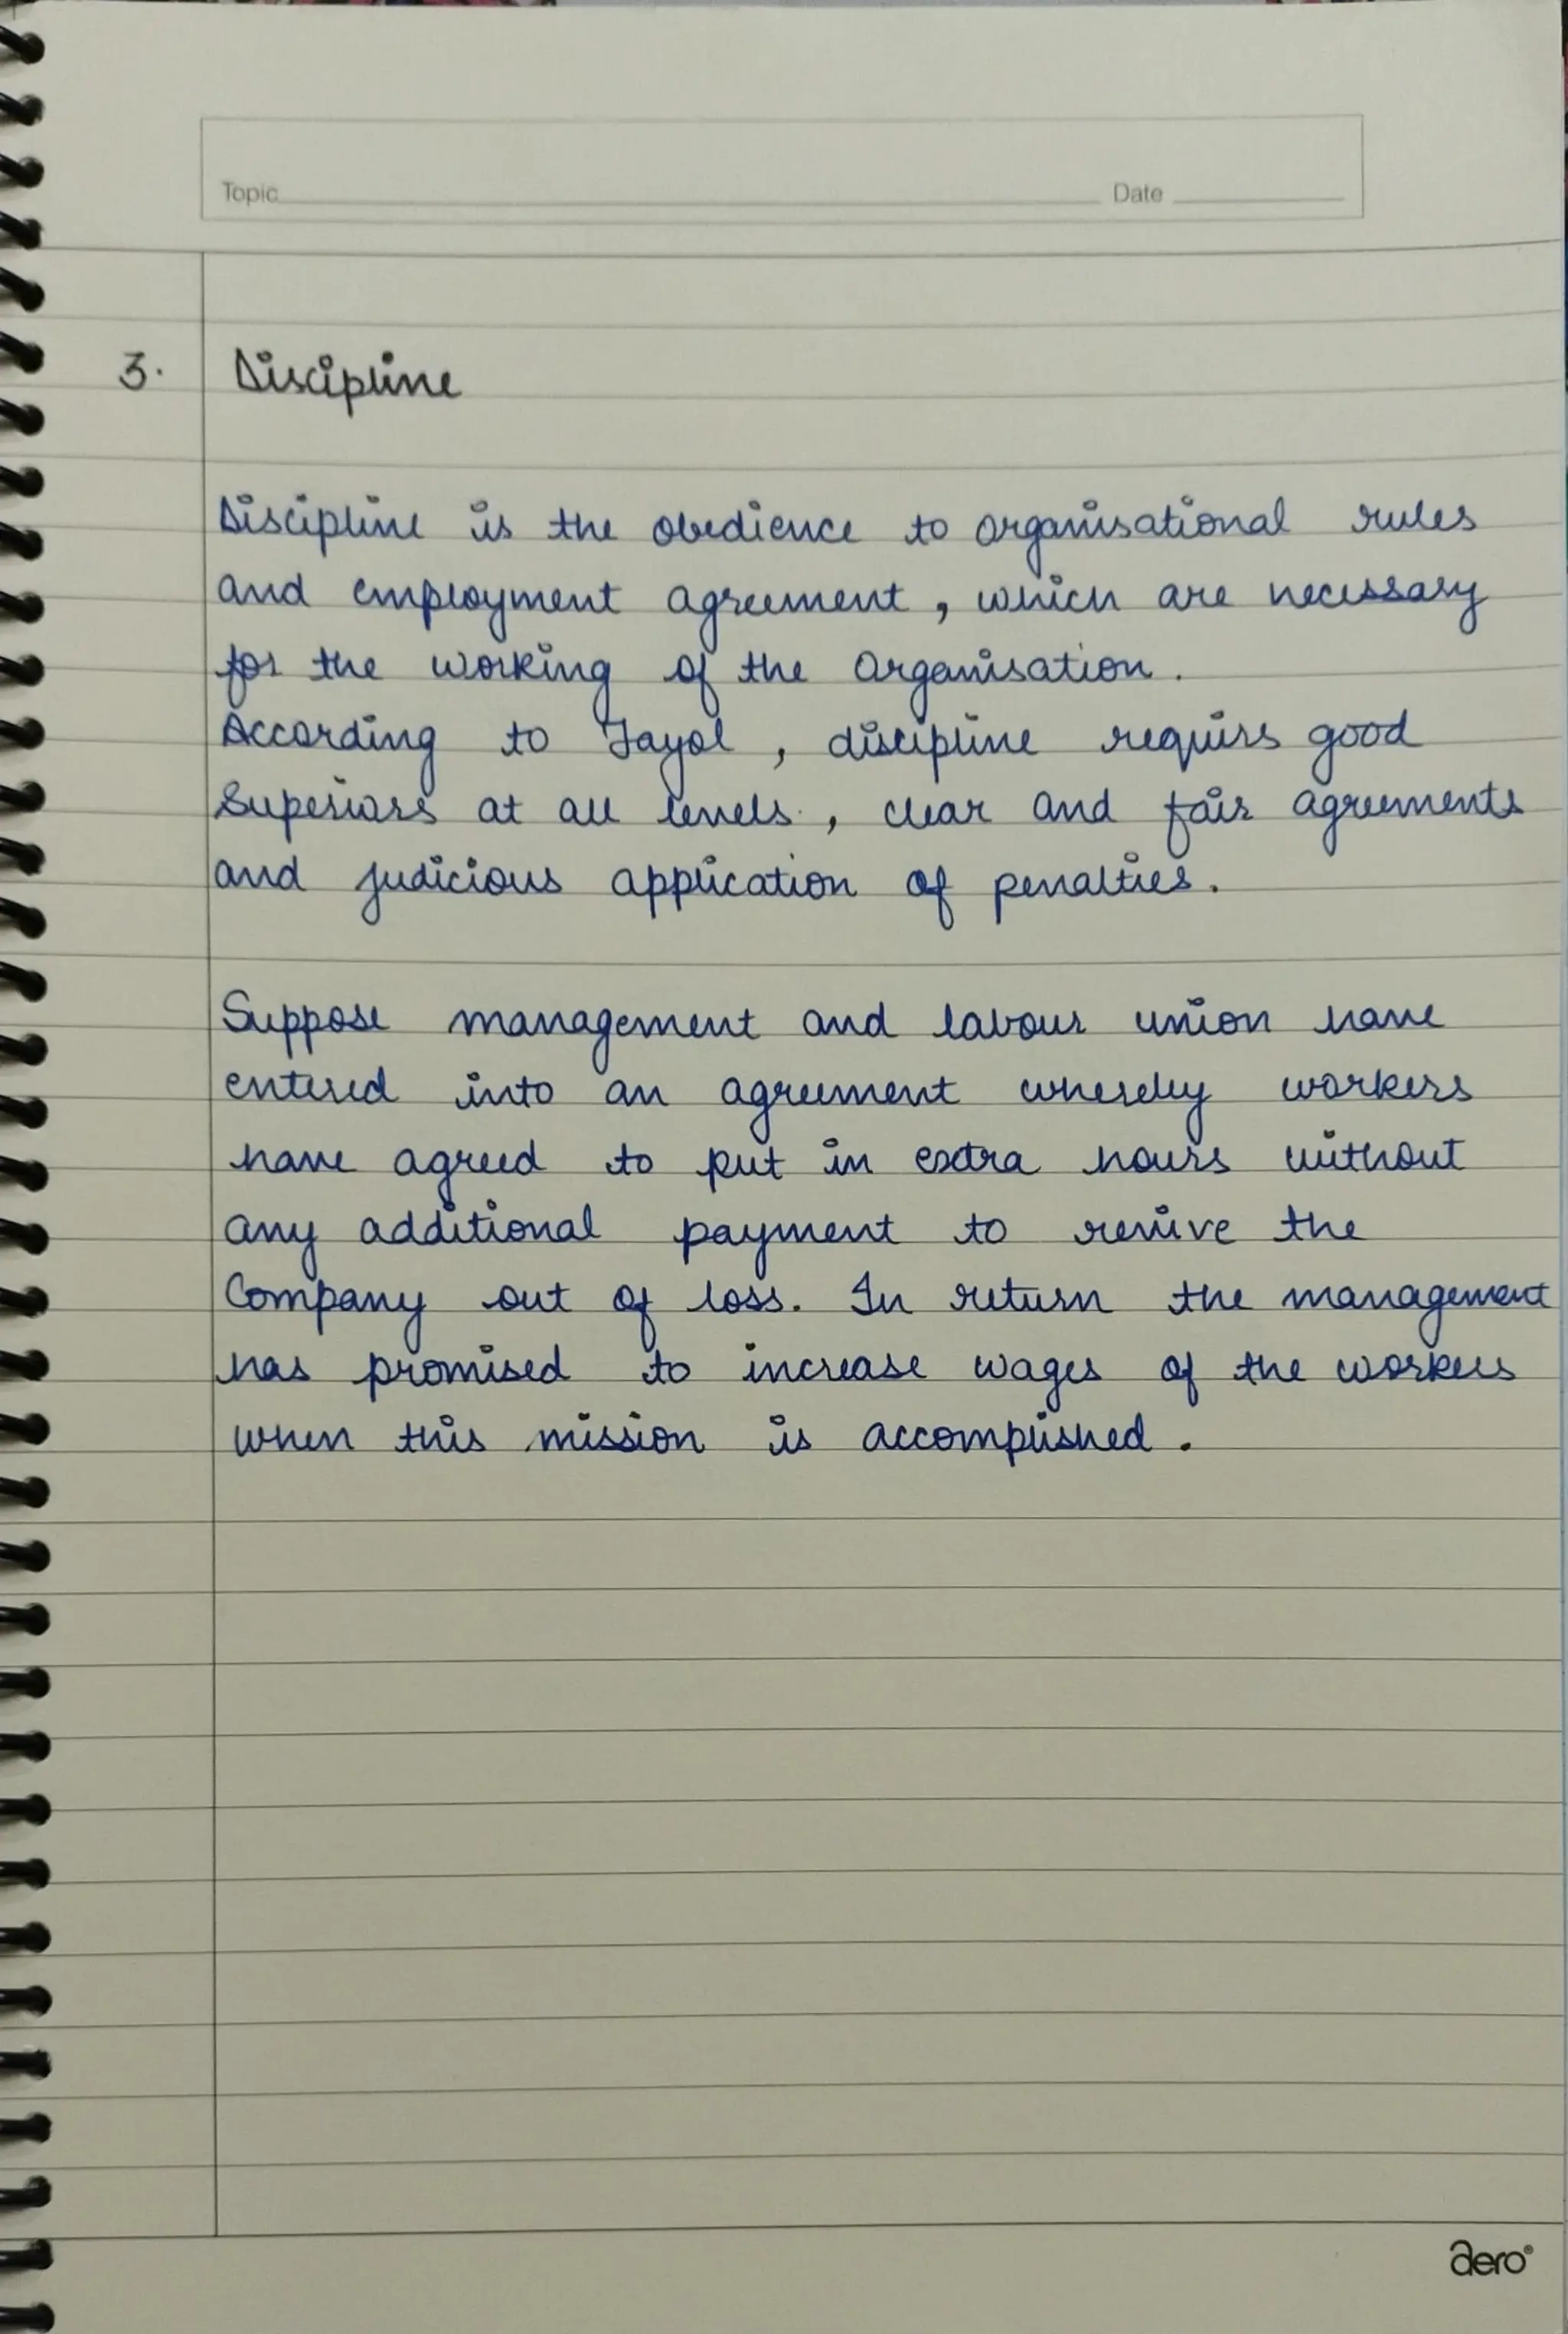 Topic Date
3. Discipline
Discipline is the obedience to organisational rules
and employment agreement, which are necessary
for the working of the organisation.
According to Fayol, discipline requirs good
superiors at all levels, clear and fair agreements
and judicious application of penalties.
Suppose management and labour union have
entered into an agreement whereby workers
have agreed to put in extra hours without
any additional payment to revive the
Company out of loss. In return the management
has promised to increase wages of the workers
when this mission is accomplished.
aero®